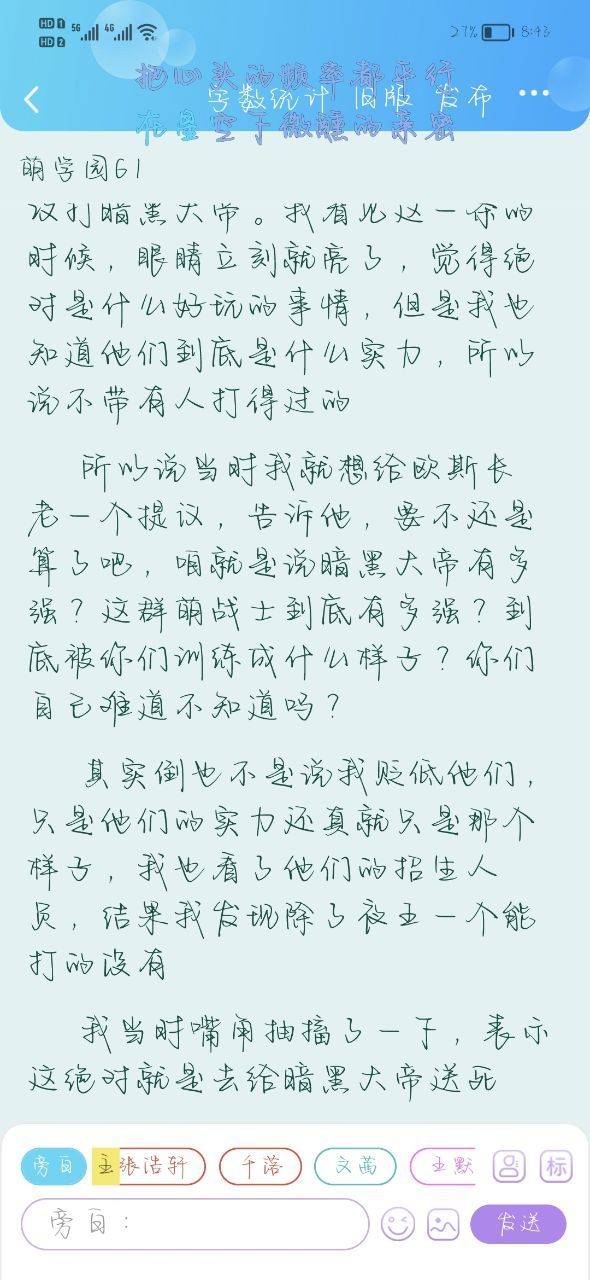 HD 1 5G 4G 27% 8:43
HD 2
把心头的频率都平行
字数统计 旧版 发布
在星空下微醺的亲密
萌学园61
攻打暗黑大帝。我看见这一条的
时候，眼睛立刻就亮了，觉得绝
对是什么好玩的事情，但是我也
知道他们到底是什么实力，所以
说不带有人打得过的
所以说当时我就想给欧斯长
老一个提议，告诉他，要不还是
算了吧，咱就是说暗黑大帝有多
强？这群萌战士到底有多强？到
底被你们训练成什么样子？你们
自己难道不知道吗？
其实倒也不是说我贬低他们，
只是他们的实力还真就只是那个
样子，我也看了他们的招生人
员，结果我发现除了夜王一个能
打的没有
我当时嘴角抽搐了一下，表示
这绝对就是去给暗黑大帝送死
旁白 主 张浩轩 千落 文茜 王默 标
旁白：
发送